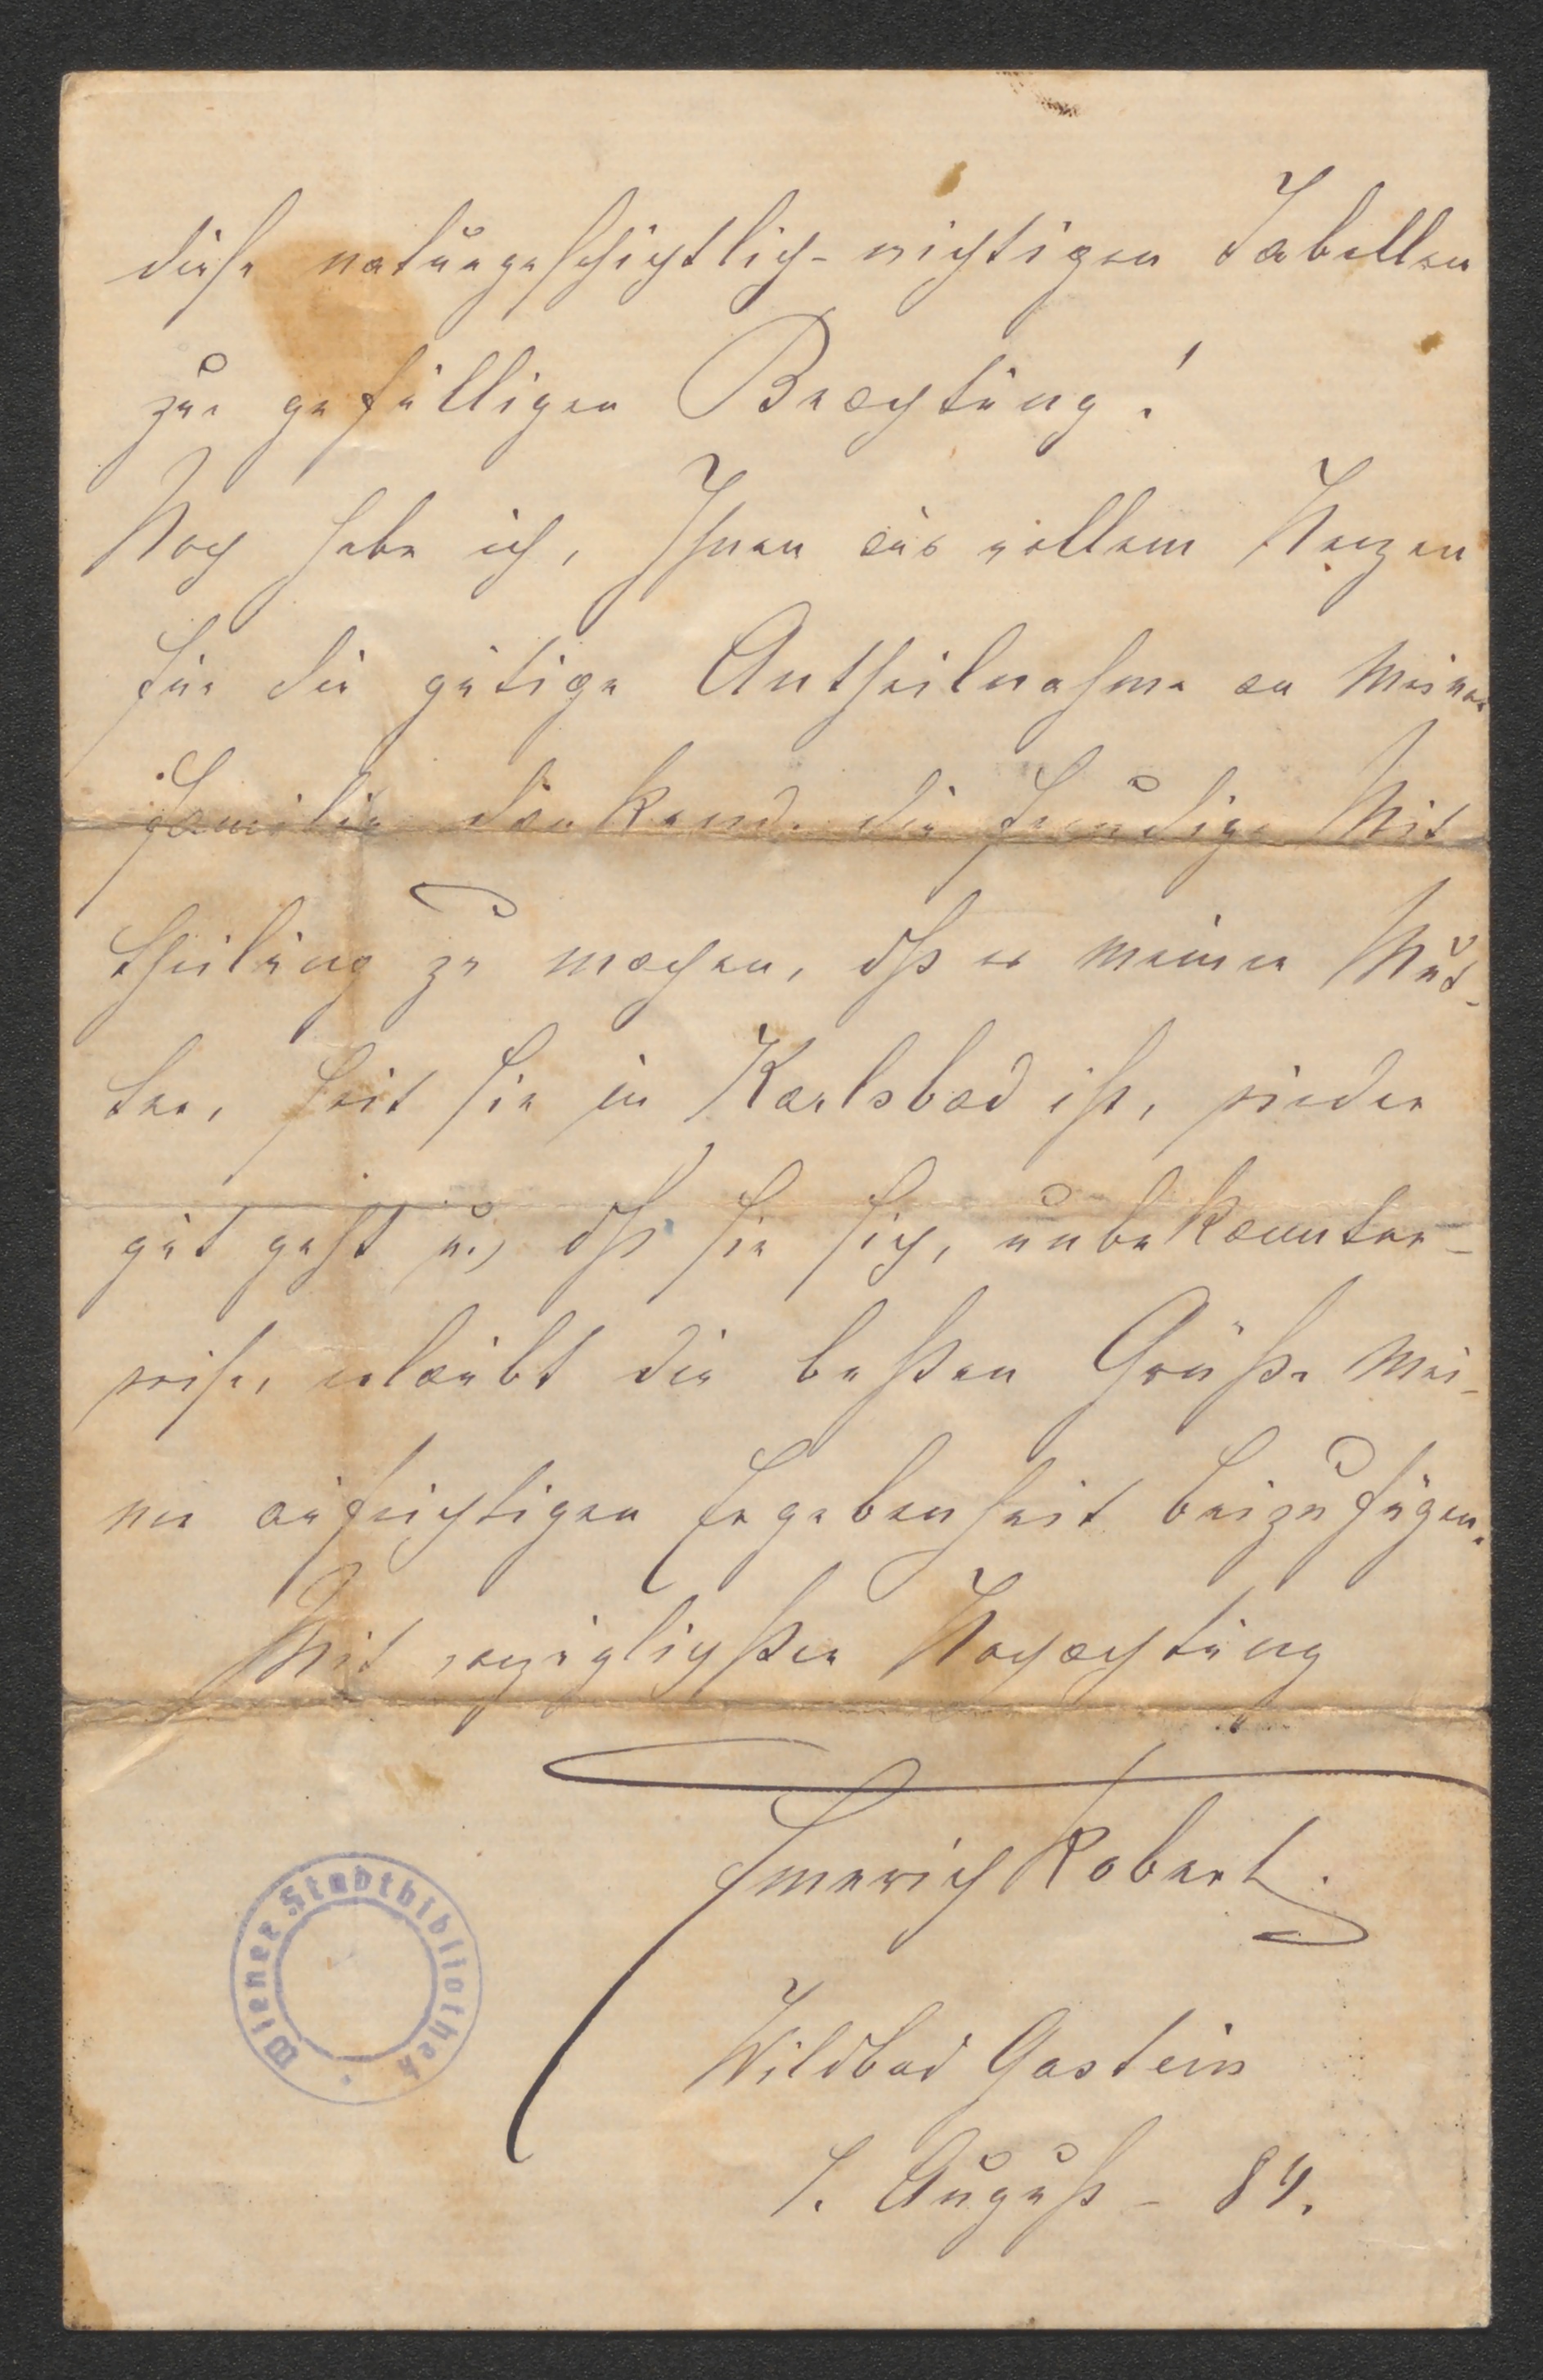 diese naturgeschichtlich-wichtigen Tabellen
zur gefälligen Beachtung!
Noch habe ich, Ihnen aus vollem Herzen
für die gütige Antheilnahme an meiner
Familie dankend, die freudige Mit
theilung zu machen, dß es meiner Mut-
ter, seit sie in Karlsbad ist, wieder
gut geht u., dß sie sich, unbekannter-
weise, erlaubt die besten Grüße mei-
ner aufrichtigen Ergebenheit beizufügen.
Mit vorzüglichster Hochachtung
Emerich Robert.
Wildbad Gastein
1. August - 84.
Wiener Stadtbibliothek